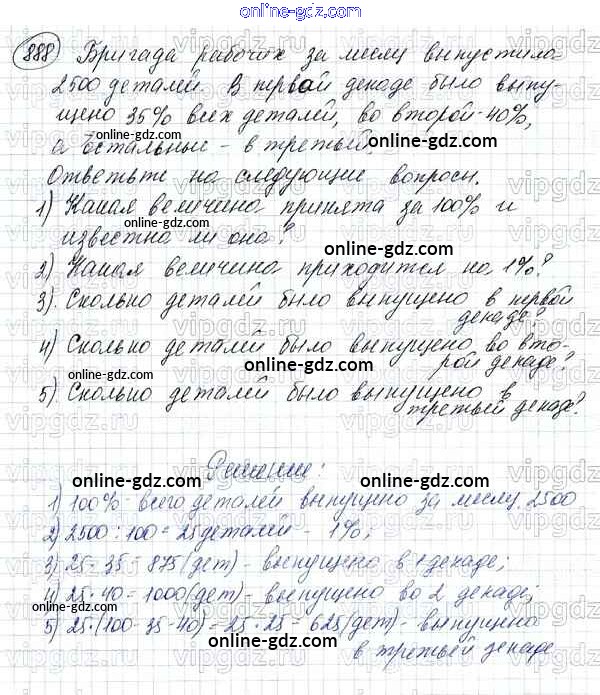 online-gdz.com
888) Бригада рабочих за месяц выпустила
2500 деталей. В первой декаде было выпу-
щено 35% всех деталей, во второй - 40%,
а остальные - в третьей.
Ответьте на следующие вопросы.
1) Какая величина принята за 100% и
известна ли она?
2) Какая величина приходится на 1%?
3) Сколько деталей было выпущено в первой
декаде?
4) Сколько деталей было выпущено во вто-
рой декаде?
5) Сколько деталей было выпущено в
третьей декаде?
Решение:
1) 100% - всего деталей выпущено за месяц 2500
2) 2500 : 100 = 25 деталей - 1%;
3) 25 · 35 = 875 (дет) - выпущено в 1 декаде;
4) 25 · 40 = 1000 (дет) - выпущено во 2 декаде;
5) 25 · (100 - 35 - 40) = 25 · 25 = 625 (дет) - выпущено
в третьей декаде
online-gdz.com